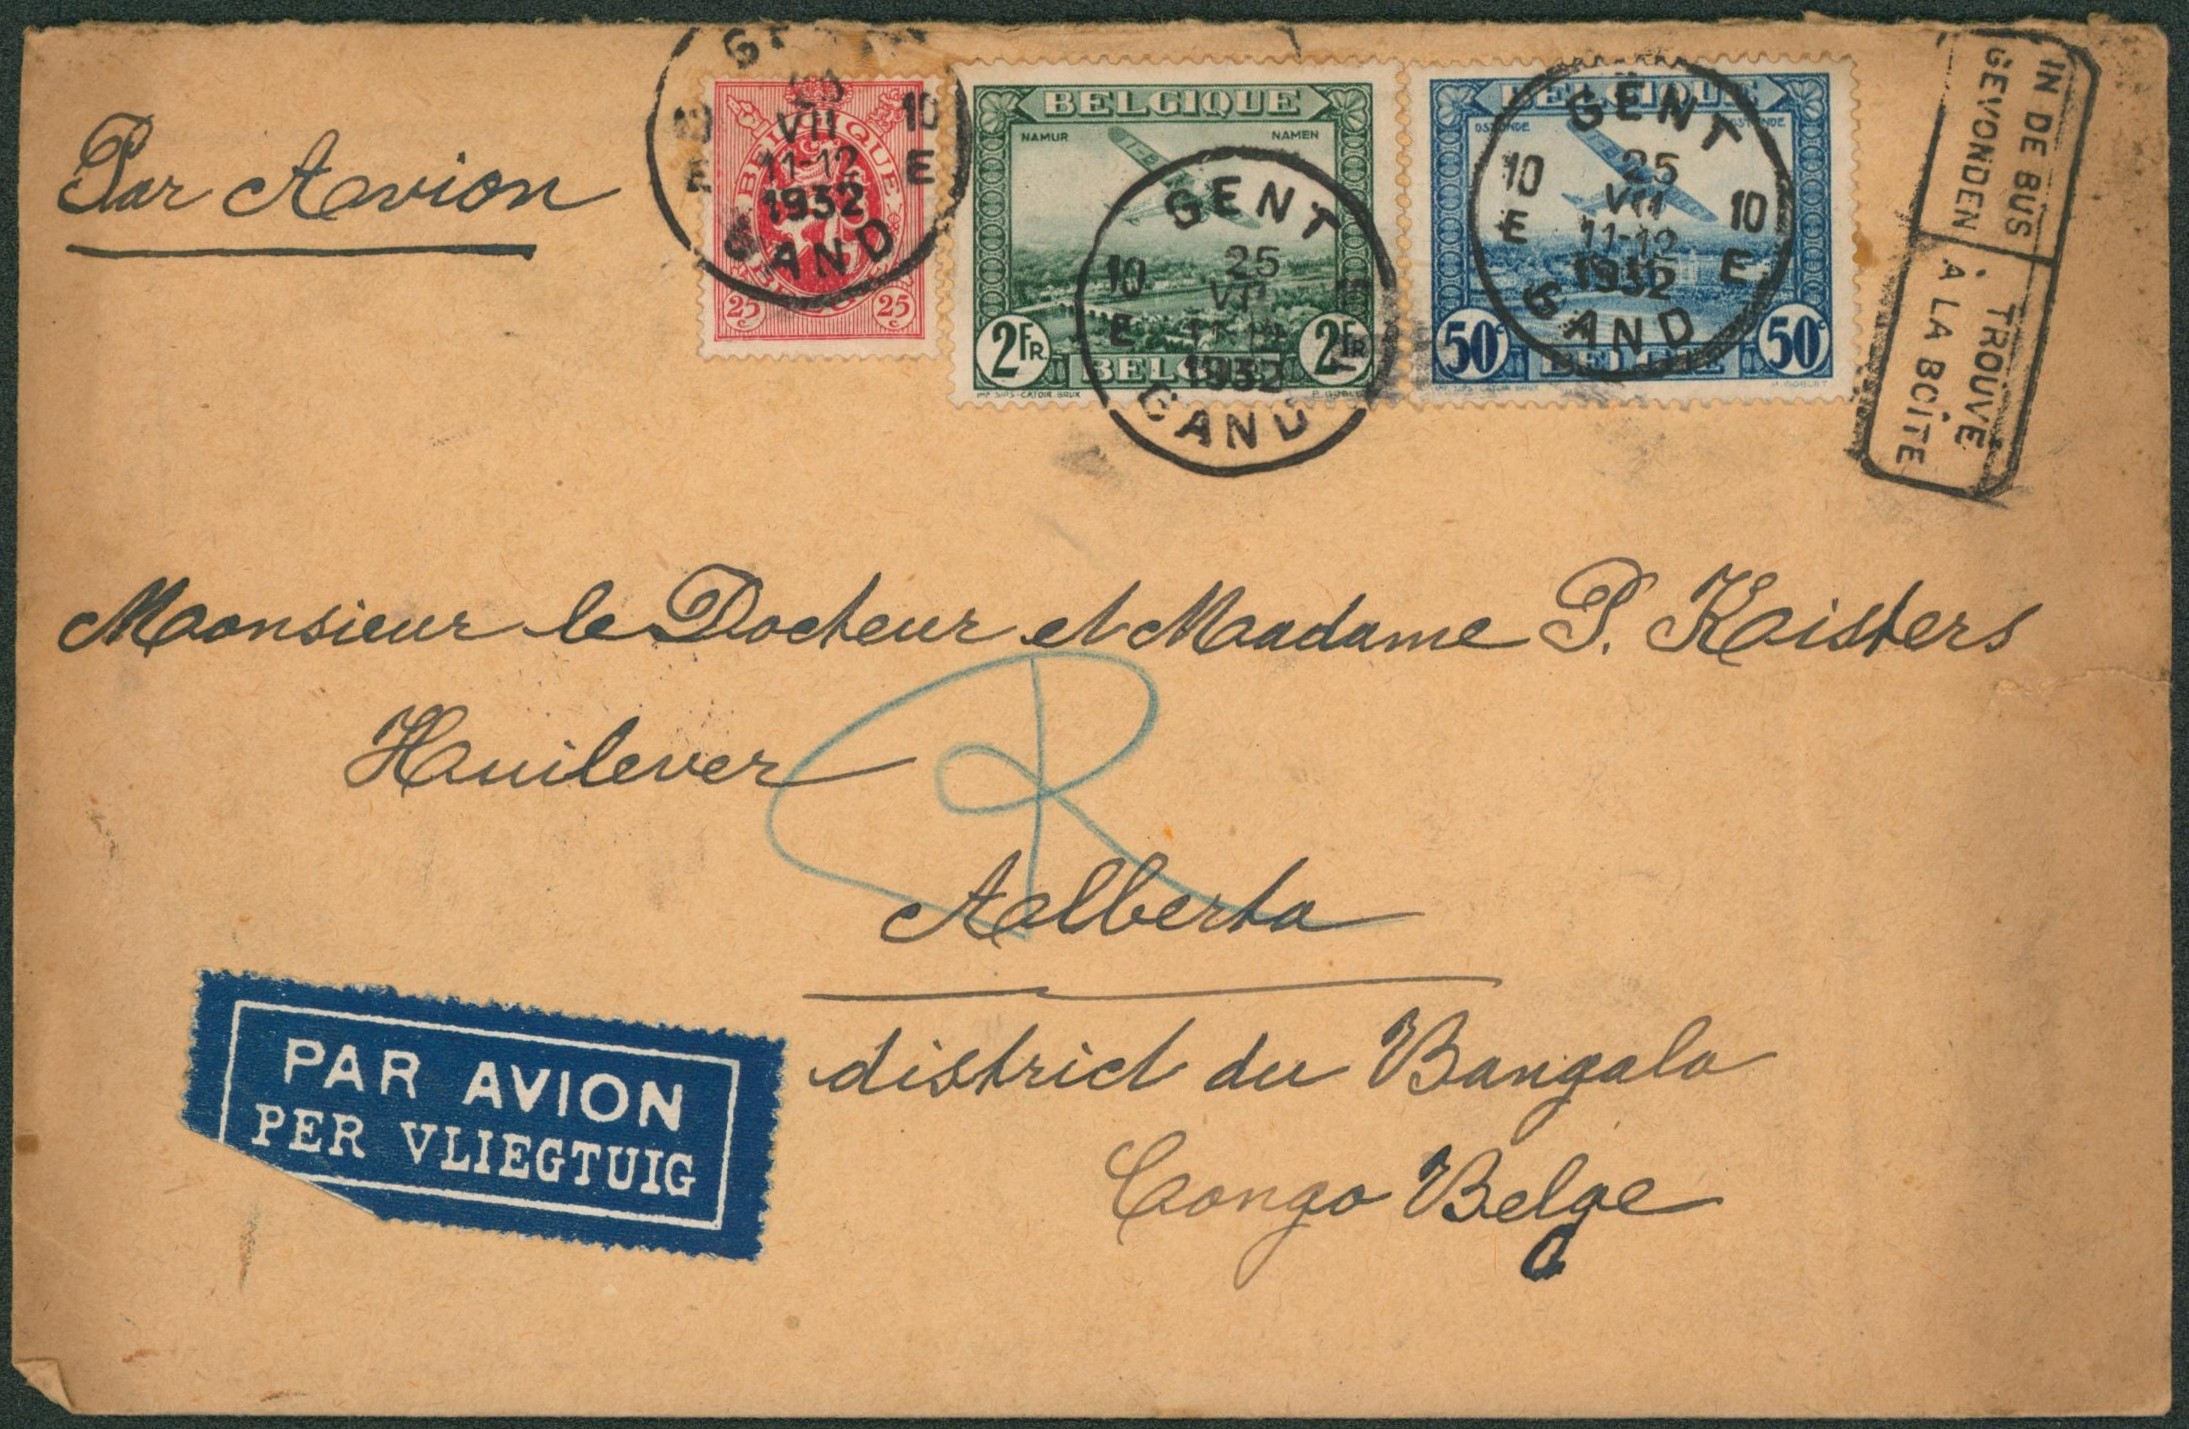 Par Avion
BELGIQUE
25c 25c
10 10
E E
VII
11-12
1932
GAND
BELGIQUE
NAMUR NAMEN
2FR. 2FR.
BELGIE
IMP. SIPS-CATOIR-BRUX
GENT
10
25
VII
E
1932
GAND
BELGIQUE
OSTENDE OSTENDE
50c 50c
BELGIE
P. GOBLET
GENT
10 10
25
VII
E E
11-12
1932
GAND
IN DE BUS
GEVONDEN
TROUVÉ
À LA BOÎTE
Monsieur le Docteur et Madame P. Kaisters
Huilever
R
Alberta
district du Bangala
Congo Belge
PAR AVION
PER VLIEGTUIG